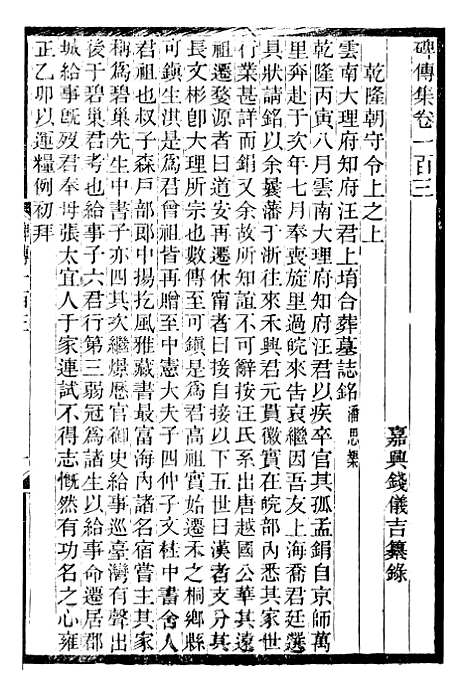 碑傳集卷一百三
嘉興錢儀吉纂錄
乾隆朝守令上之上
雲南大理府知府汪君上堉合葬墓誌銘 潘思榘
乾隆丙寅八月雲南大理府知府汪君以疾卒官其孤孟鋗自京師萬
里奔赴于次年七月奉喪旋里過皖來告哀繼因吾友上海喬君廷選
具狀請銘以余曩藩于浙往來禾興君元貰徽實在皖部內悉其家世
行業甚詳而鋗又余故所知誼不可辭按汪氏系出唐越國公華其遠
祖遷婺源者曰道安再遷休甯者曰接自接以下五世曰漢者支分其
長文彬卽大理所宗也數傳至可鎮是爲君高祖實始遷禾之桐鄉縣
可鎮生淇是爲君曾祖皆再贈至中憲大夫子四仲子文桂中書舍人
君祖也叔子森戶部郎中揚扢風雅藏書最富海內諸名宿嘗主其家
稱爲碧巢先生中書子亦四其次繼燝歷官御史給事巡臺灣有聲出
後于碧巢君考也給事子六君行第三弱冠爲諸生以給事命遷居郡
城給事旣歿君奉母張太宜人于家連試不得志慨然有功名之心雍
正乙卯以運糧例初拜